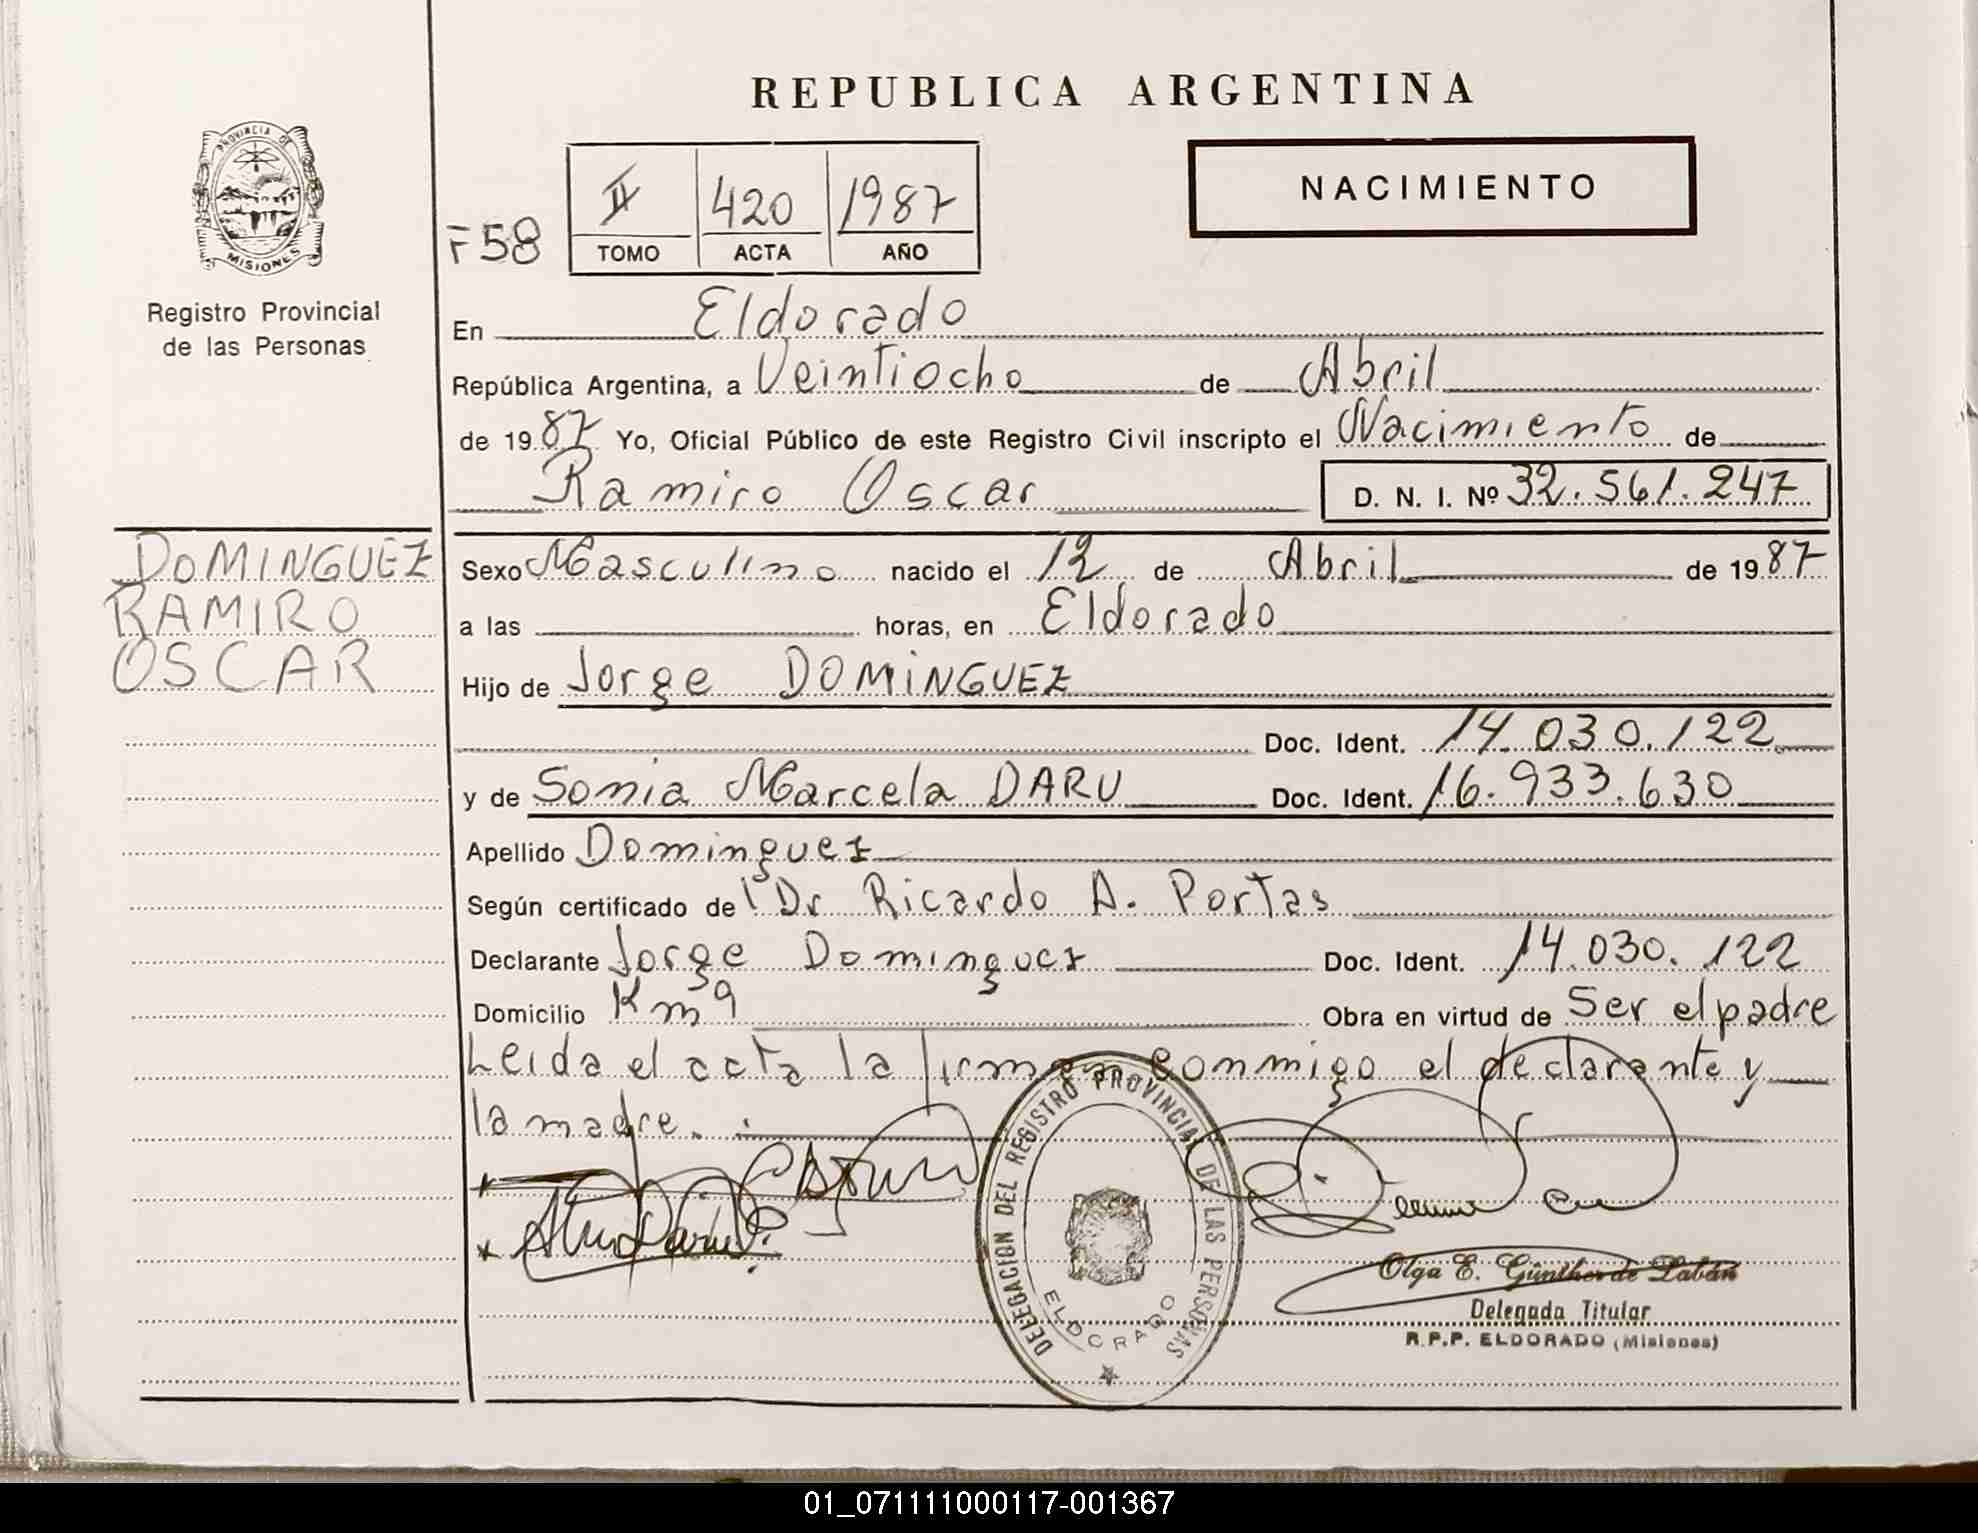 REPUBLICA ARGENTINA
PROVINCIA DE MISIONES
Registro Provincial
de las Personas
F58
II 420 1987
TOMO ACTA AÑO
NACIMIENTO
En Eldorado
República Argentina, a Veintiocho de Abril
de 1987 Yo, Oficial Público de este Registro Civil inscripto el Nacimiento de
Ramiro Oscar D. N. I. Nº 32.561.247
DOMINGUEZ
RAMIRO
OSCAR
Sexo Masculino nacido el 12 de Abril de 1987
a las horas, en Eldorado
Hijo de Jorge DOMINGUEZ
Doc. Ident. 14.030.122
y de Sonia Marcela DARU Doc. Ident. 16.933.630
Apellido Dominguez
Según certificado de Dr Ricardo A. Portas
Declarante Jorge Dominguez Doc. Ident. 14.030.122
Domicilio Km 9 Obra en virtud de Ser el padre
Leida el acta la firman conmigo el declarante y
la madre.
DELEGACION DEL REGISTRO PROVINCIAL DE LAS PERSONAS
ELDORADO
Olga E. Günther de Labán
Delegada Titular
R.P.P. ELDORADO (Misiones)
01_071111000117-001367